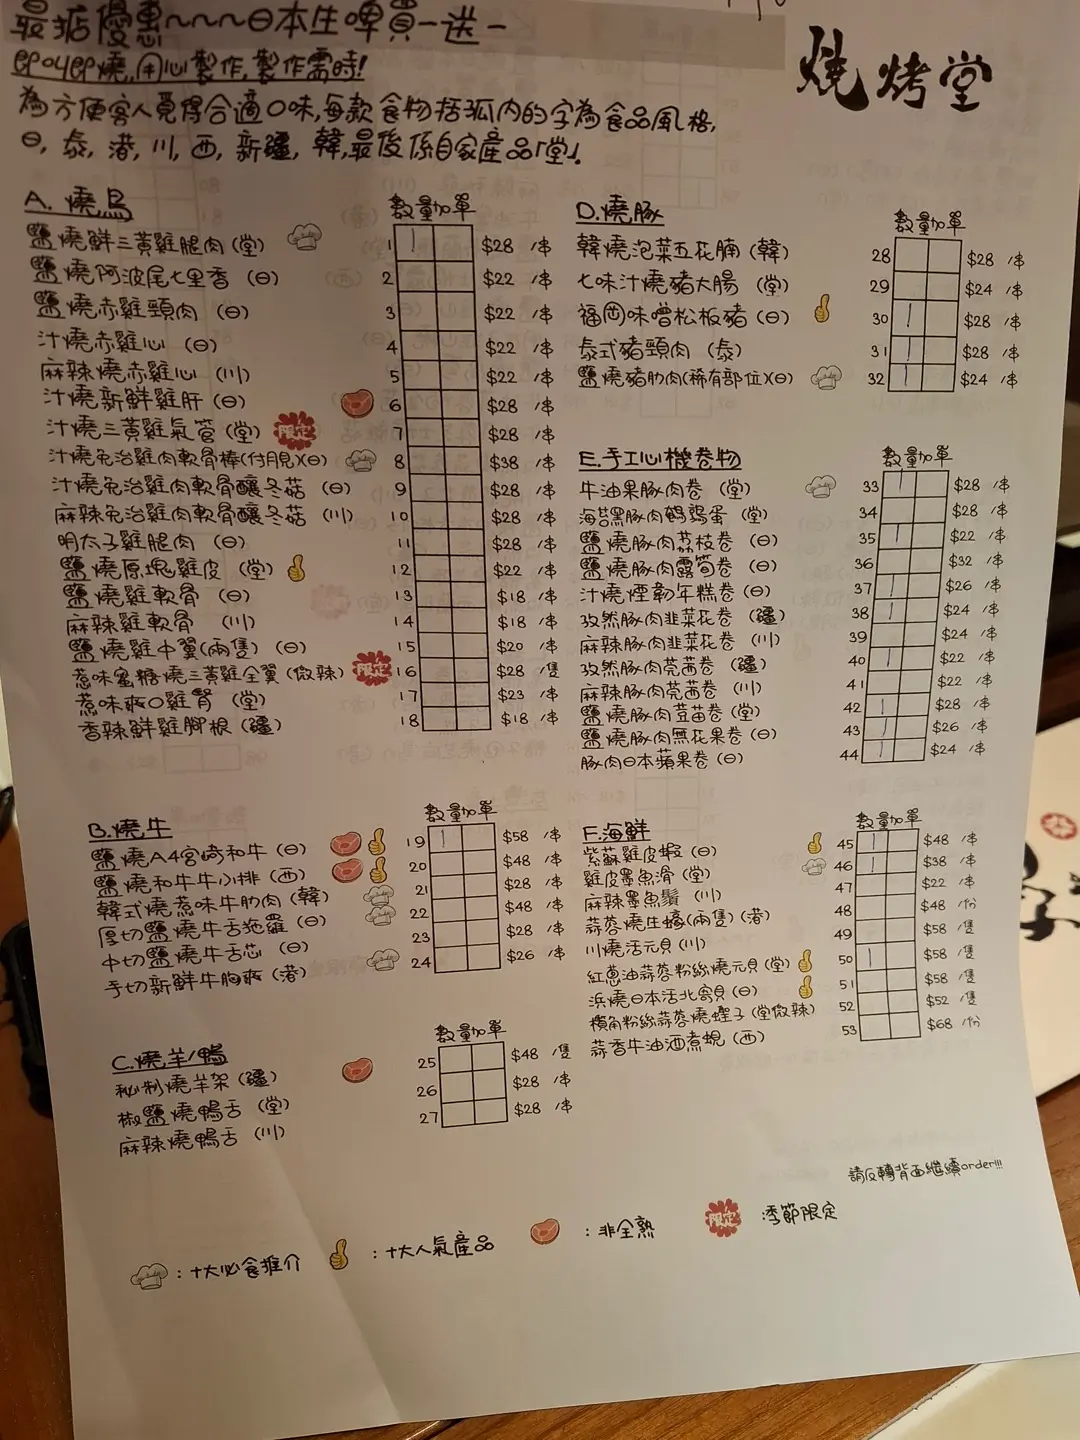 最抵優惠~~~~日本生啤買一送一
即叫即燒,用心製作,製作需時!
燒烤堂
為方便客人覓得合適口味,每款食物括弧內的字為食品風格,
日, 泰, 港, 川, 西, 新疆, 韓,最後係自家產品「堂」.
A. 燒鳥 數量 加單
鹽燒鮮三黃雞腿肉 (堂) 1 $28 /串
鹽燒阿波尾七里香 (日) 2 $22 /串
鹽燒赤雞頸肉 (日) 3 $22 /串
汁燒赤雞心 (日) 4 $22 /串
麻辣燒赤雞心 (川) 5 $22 /串
汁燒新鮮雞肝 (日) 6 $28 /串
汁燒三黃雞氣管 (堂) 限定 7 $28 /串
汁燒免治雞肉軟骨棒(付月見)(日) 8 $38 /串
汁燒免治雞肉軟骨釀冬菇 (日) 9 $28 /串
麻辣免治雞肉軟骨釀冬菇 (川) 10 $28 /串
明太子雞腿肉 (日) 11 $28 /串
鹽燒原塊雞皮 (堂) 12 $22 /串
鹽燒雞軟骨 (日) 13 $18 /串
麻辣雞軟骨 (川) 14 $18 /串
鹽燒雞中翼(兩隻) (日) 15 $20 /串
惹味蜜糖燒三黃雞全翼 (微辣) 限定 16 $28 /隻
惹味爽口雞腎 (堂) 17 $23 /串
香辣鮮雞腳根 (疆) 18 $18 /串
B. 燒牛 數量 加單
鹽燒A4宮崎和牛 (日) 19 $58 /串
鹽燒和牛牛小排 (西) 20 $48 /串
韓式燒惹味牛肋肉 (韓) 21 $28 /串
厚切鹽燒牛舌拖羅 (日) 22 $48 /串
中切鹽燒牛舌芯 (日) 23 $28 /串
手切新鮮牛胸爽 (港) 24 $26 /串
C. 燒羊/鴨 數量 加單
秘制燒羊架 (疆) 25 $48 /隻
椒鹽燒鴨舌 (堂) 26 $28 /串
麻辣燒鴨舌 (川) 27 $28 /串
D. 燒豚 數量 加單
韓燒泡菜五花腩 (韓) 28 $28 /串
七味汁燒豬大腸 (堂) 29 $24 /串
福岡味噌松板豬 (日) 30 $28 /串
泰式豬頸肉 (泰) 31 $28 /串
鹽燒豬肋肉(稀有部位)(日) 32 $24 /串
E. 手工心機卷物 數量 加單
牛油果豚肉卷 (堂) 33 $28 /串
海苔黑豚肉鵪鶉蛋 (堂) 34 $28 /串
鹽燒豚肉荔枝卷 (日) 35 $22 /串
鹽燒豚肉露筍卷 (日) 36 $32 /串
汁燒煙韌年糕卷 (日) 37 $26 /串
孜然豚肉韭菜花卷 (疆) 38 $24 /串
麻辣豚肉韭菜花卷 (川) 39 $24 /串
孜然豚肉芫茜卷 (疆) 40 $22 /串
麻辣豚肉芫茜卷 (川) 41 $22 /串
鹽燒豚肉荳苗卷 (堂) 42 $28 /串
鹽燒豚肉無花果卷 (日) 43 $26 /串
豚肉日本蘋果卷 (日) 44 $24 /串
F. 海鮮 數量 加單
紫蘇雞皮蝦 (日) 45 $48 /串
雞皮墨魚滑 (堂) 46 $38 /串
麻辣墨魚鬚 (川) 47 $22 /串
蒜蓉燒生蠔(兩隻) (港) 48 $48 /份
川燒活元貝 (川) 49 $58 /隻
紅蔥油蒜蓉粉絲燒元貝 (堂) 50 $58 /隻
浜燒日本活北寄貝 (日) 51 $58 /隻
欖角粉絲蒜蓉燒蟶子 (堂微辣) 52 $52 /隻
蒜香牛油酒煮蜆 (西) 53 $68 /份
請反轉背面繼續order!!!
:十大必食推介 :十大人氣產品 :非全熟 限定 :季節限定